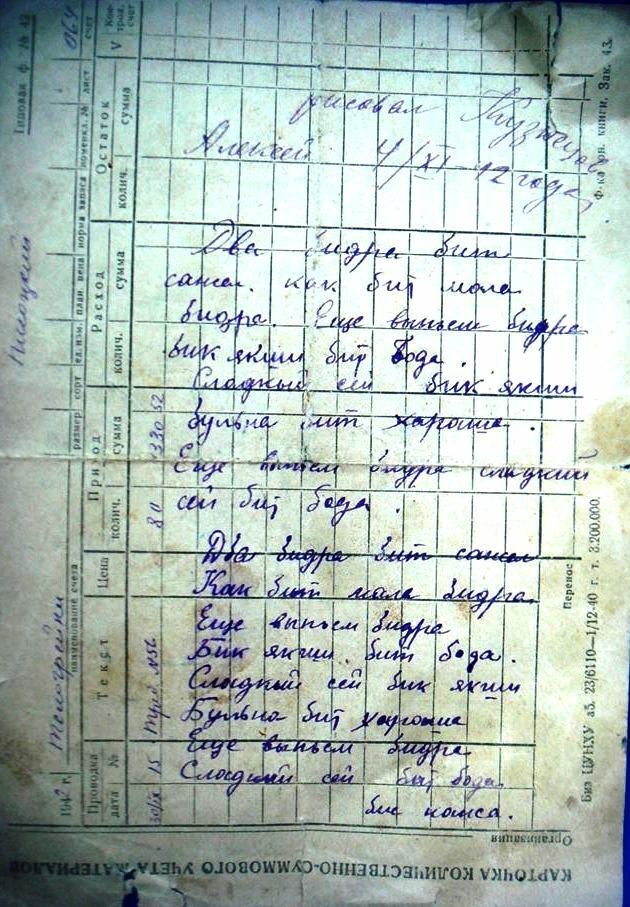 рисовал Кузнецов
Алексей 4/XI-42 года
Два бидра бит
сажел. как бит мала
бидра. Еще выпьем бидра
бик якши бит бода.
Сладкый сей бик якши
бульна бит хароша.
Еще выпьем бидра сладкий
сей бит бода.
Два бидра бит сажел
Как бит мала бидра.
Еще выпьем бидра
Бик якши бит бода.
Сладкый сей бик якши
Бульна бит хароша
Еще выпьем бидра
Сладкий сей бит бода.
КАРТОЧКА КОЛИЧЕСТВЕННО-СУММОВОГО УЧЕТА МАТЕРИАЛОВ
Организация
Типовая ф. № 42
1942 г. Телогрейки
наименование счета размер сорт ед. изм. план. цена норма запаса номенкл. № лист счет
064
Проводка Текст Цена Приход Расход Остаток V Контрол. счет
дата № колич. сумма колич. сумма колич. сумма
15 Треб №56 80 1330 52
Перенос
Биз ЦУНХУ аб. 23/6110—1/12-40 г. т. 3.200.000.
Ф-ка бн. книги. Зак. 43.